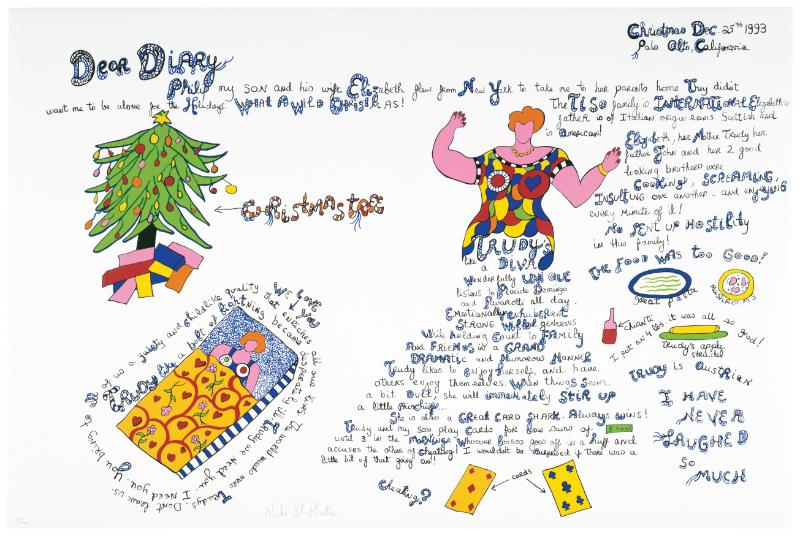 Christmas Dec. 25th 1993
Palo Alto, California
Dear Diary
Philip my son and his wife Elizabeth flew from New York to take me to her parents home. They didn't
want me to be alone for the Holidays. WHAT A WILD CHRISTMAS!
The TISO family is INTERNATIONAL Elizabeth's
father is of Italian origin
Scottish and
is american!
Elizabeth, her Mother Trudy her
father John and her 2 good
looking brothers were
COOKING, SCREAMING,
INSULTING one another - and enjoying
every minute of it!
No PENT UP HOSTILITY
in this family!
The FOOD WAS TOO GOOD!
CHRISTMAS TREE
great pasta
MUSHROOMS
chianti
it was all so good!
I put on 4 lbs
Trudy's apple
strudel
TRUDY is AUSTRIAN
I HAVE
NEVER
LAUGHED
So
MUCH
TRUDY'S
like
a DIVA.
Wonderfully UNIQUE
listens to Placido Domingo
and Pavarotti all day.
EMOTIONALLY exhuberant
STRONG willed generous
While holding Court to FAMILY
And FRIENDS in a GRAND
DRAMATIC and Humorous MANNER
Trudy likes to enjoy herself, and have
others enjoy themselves. When things seem
a bit dull, she will immediately STIR UP
a little mischief...
She is also a GREAT CARD SHARK. Always wins!
Trudy and my son play cards for low sums of
until 3 in the morning. Whoever looses goes off in a huff and
accuses the other of cheating! I wouldn't be surprised if there was a
little bit of that going on!!
Cheating?
cards
We love
you
TRUDY like a bolt of lightning
You bring to all of us a gaiety and childlike quality that enriches all our lives. The world needs more
Trudys. Don't leave us. I need you. We need you